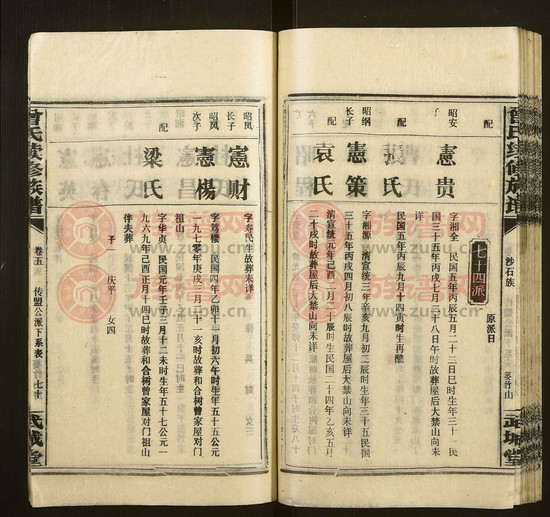 沙石族
婆竹山
武城堂
原派日
七十四派
昭安
憲贵
字湘全 民国五年丙辰五月二十三日巳时生年三十一 民
国三十五年丙戌七月二十八日午时故葬屋后大禁山向未详
配
张氏
民国五年丙辰九月十四寅时生再醮
昭纲
长子
憲策
字湘源 清宣统三年辛亥九月初二辰时生年三十五民国
三十五年丙戌四月初八辰时故葬屋后大禁山向未详
配
袁氏
清宣统元年己酉二月二十辰时生民国二十四年乙亥五月
二十戌时故葬屋后大禁山向未详
昭凤
长子
憲财
字寿民 年故葬未详
昭凤
次子
憲楊
字笃楼 民国四年乙卯十月初六午时生年五十五公元
一九七零年庚戌二月二十一亥时故葬和合树曾家屋对门
祖山
配
梁氏
字华贞 民国元年壬子三月十二未时生年五十七公元一
九六九年己酉正月十四巳时故葬和合树曾家屋对门祖山
伴夫葬
子 庆平 女四
曾氏续修族谱
卷五
传盟公派下系表
武城堂
族谱网
www.zupu.cn